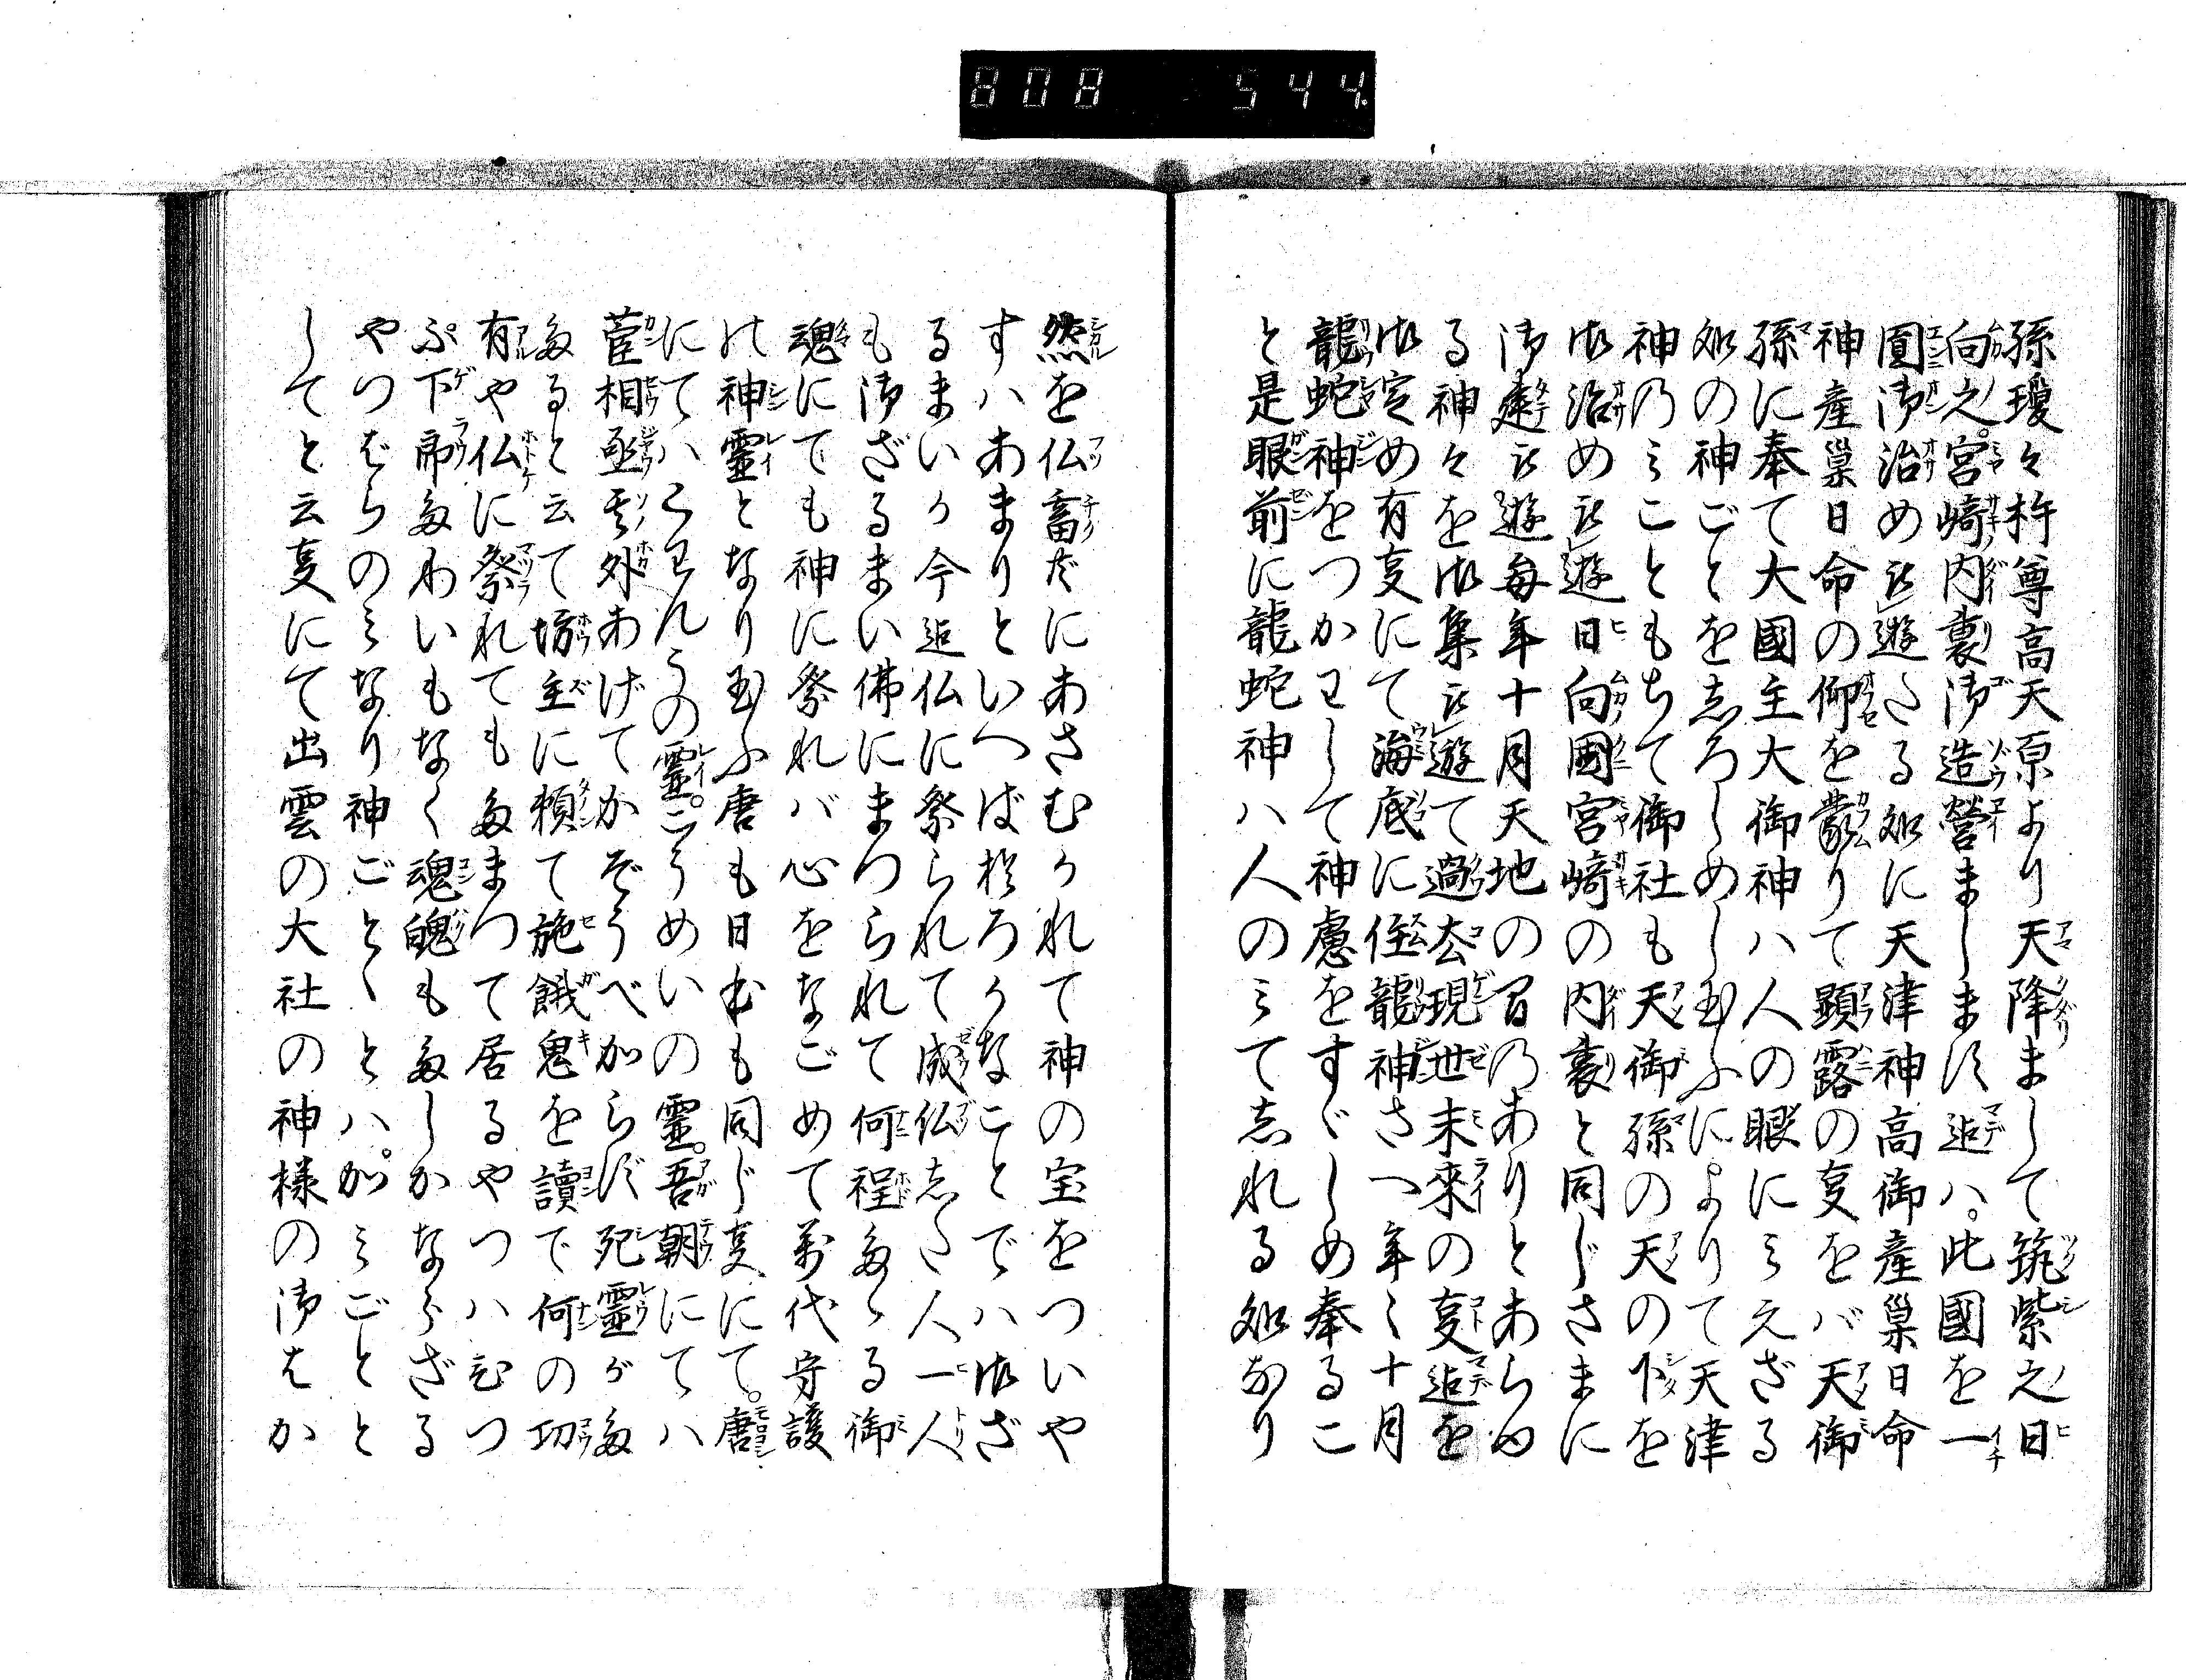 808 544.
孫瓊々杵尊高天原より天降ましまして筑紫之日
向之宮﨑内裏御造営ましましす迠ハ此國を一
圓御治め被遊たる処に天津神高御産巣日命
神産巣日命の仰を蒙りて顕露の叓をバ天御
孫に奉て大國主大御神ハ人の眼にミえざる
処の神ごとを志ろしめし玉ふによりて天津
神乃ミこともちて御社も天御孫の天の下を
御治め被遊日向國宮﨑の内裏と同じさまに
御建被遊毎年十月天地の間乃ありとあらゆ
る神々を御集被遊て過去現世未来の叓迠を
御定め有叓にて海底に侄龍神さへ年々十月
龍蛇神をつかわして神慮をすゞしめ奉るこ
と是眼前に龍蛇神ハ人のミて志れる処なり
然を仏畜生にあさむかれて神の宝をついや
すハあまりといへば於ろかなことでハ御ざ
るまいか今迠仏に祭られて成仏志た人一人
も御ざるまい佛にまつられて何程多ゝる御
魂にても神に祭れバ心をなごめて萬代守護
の神霊となり玉ふ唐も日本も同じ叓にて唐
にてハくわんうの霊こうめいの霊吾朝にてハ
菅相丞其外あげてかぞうべからず死霊が多
多ると云て坊主に頼て施餓鬼を讀で何の功
有や仏に祭れても多まつて居るやつハむつ
ぷ下郎多わいもなく魂魄も多しかならざる
やつばらのミなり神ごとゝとハ加ミごとと
してと云叓にて出雲の大社の神様の御はか